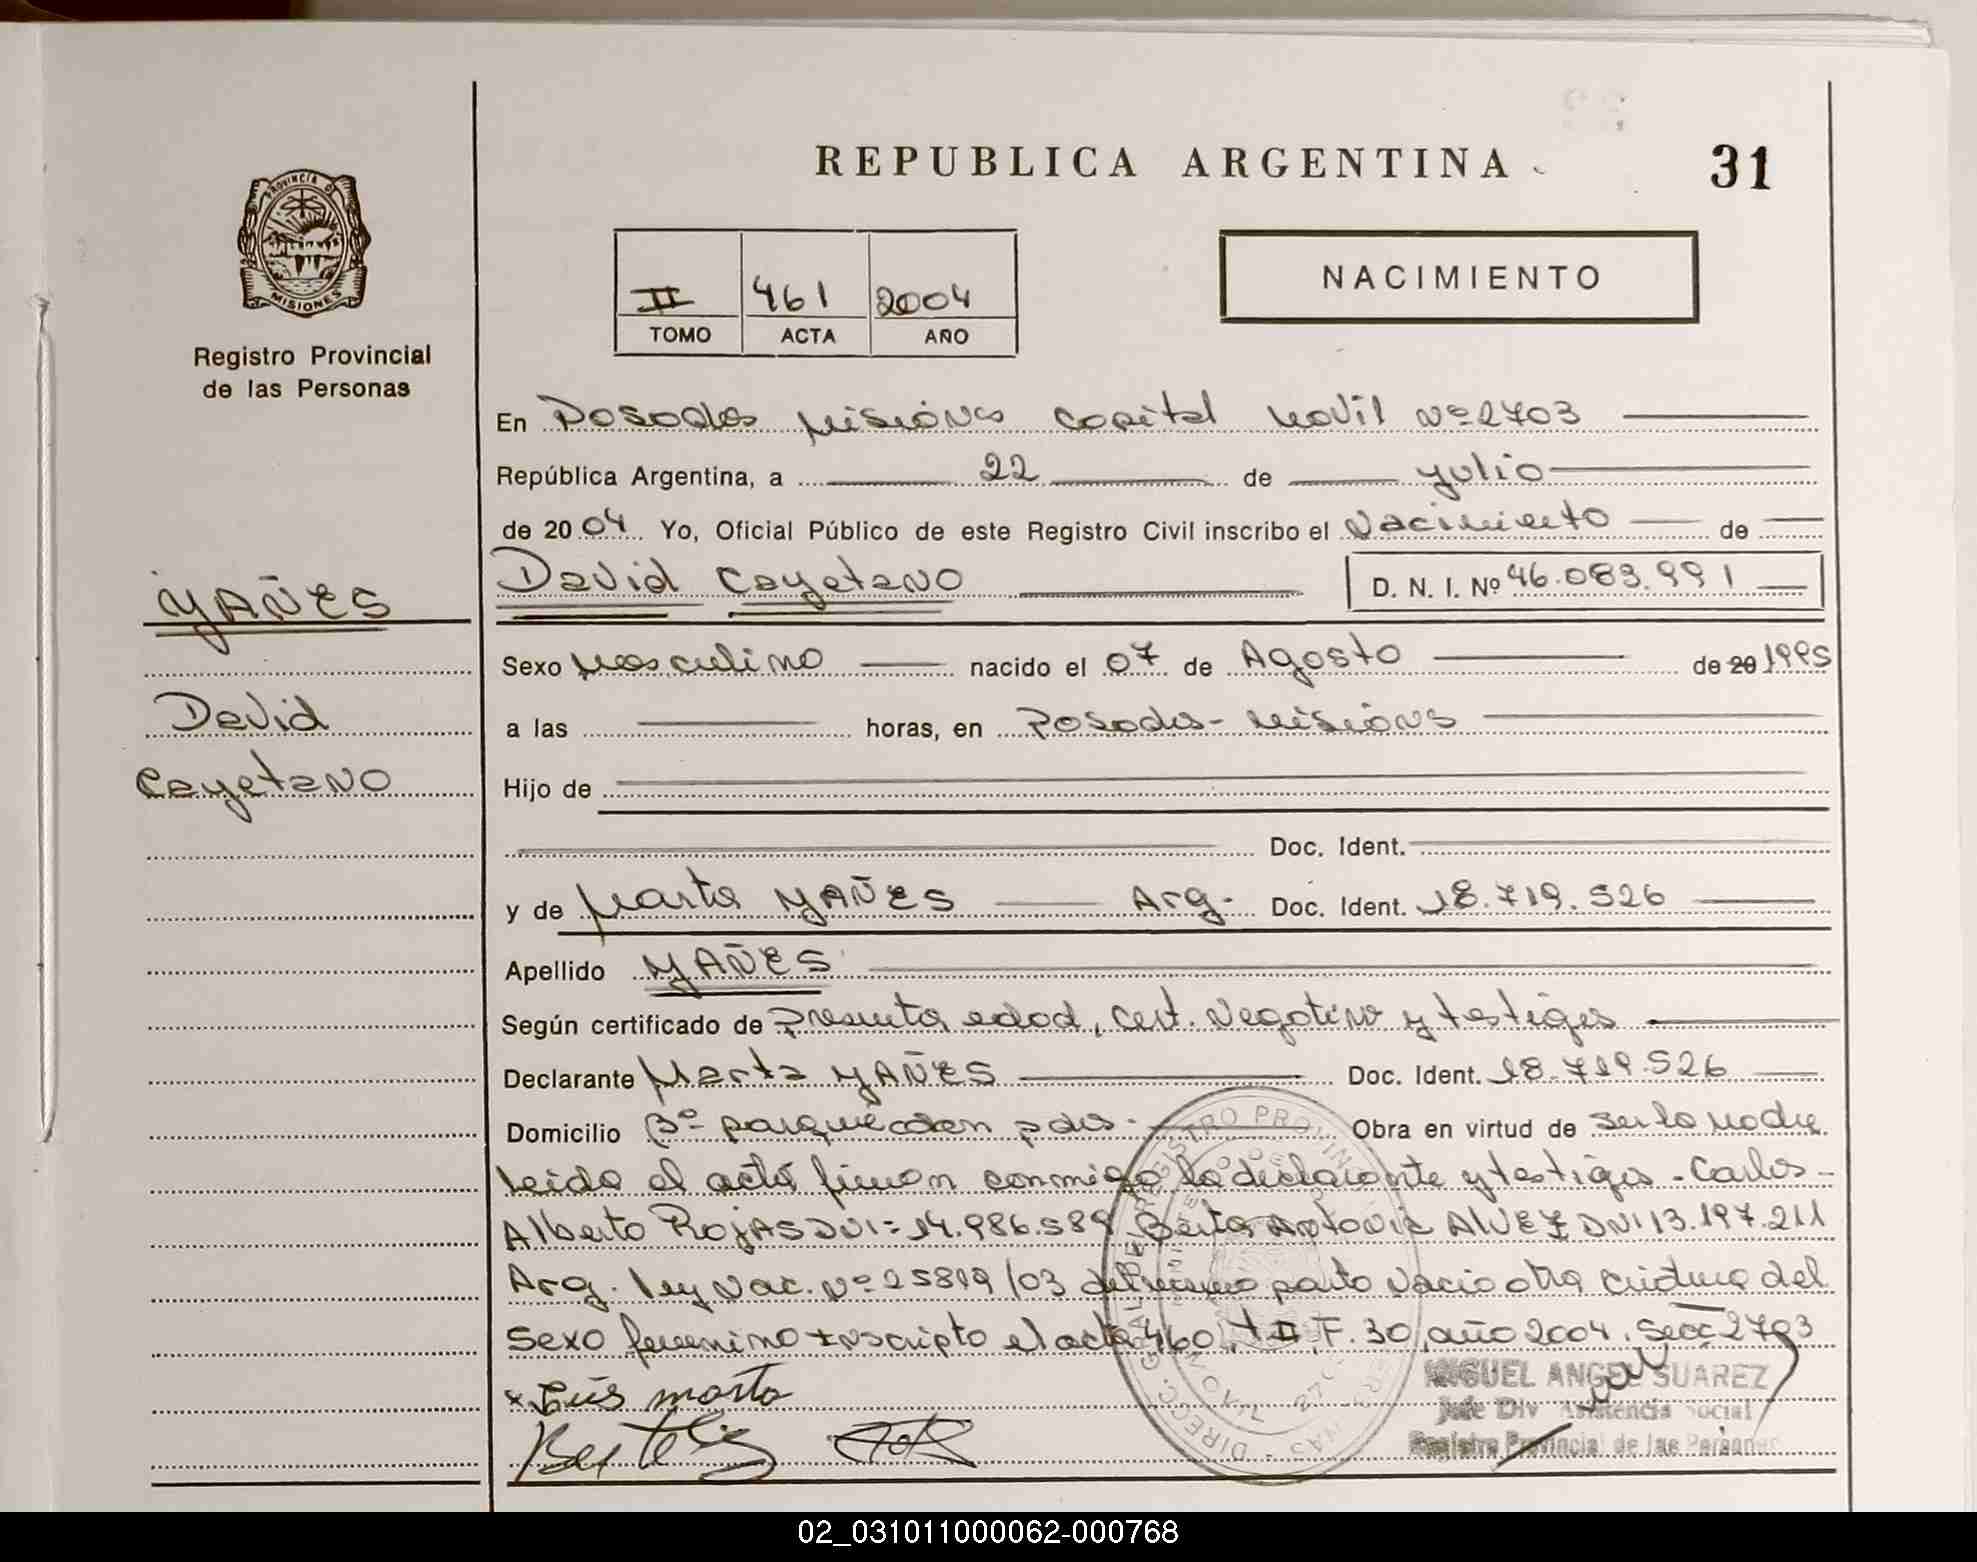 REPUBLICA ARGENTINA
31
PROVINCIA DE
MISIONES
Registro Provincial
de las Personas
II 461 2004
TOMO ACTA AÑO
NACIMIENTO
En Posadas Misiones Capital Movil Nº 2703
República Argentina, a 22 de julio
de 2004 Yo, Oficial Público de este Registro Civil inscribo el Nacimiento de
YAÑES
David Cayetano
D. N. I. Nº 46.083.991
Sexo Masculino nacido el 07 de Agosto de 20 1995
David
a las horas, en Posadas - Misiones
Cayetano
Hijo de
Doc. Ident.
y de Marta YAÑES Arg. Doc. Ident. 18.719.526
Apellido YAÑES
Según certificado de presunta edad, Cert. Negativo y testigos
Declarante Marta YAÑES Doc. Ident. 18.719.526
Domicilio Bº parque Pdas. Obra en virtud de ser la madre
Leida el acta firman conmigo la declarante y testigos - Carlos
Alberto ROJAS DNI = 14.986.589 Berta Antonia ALVEZ DNI 13.197.211
Arg. Ley Nac. Nº 25819/03 del mismo parto nacio otra criatura del
sexo femenino inscripto el acta 460, t II, F. 30, año 2004. Secc 2703
MIGUEL ANGEL SUAREZ
Jefe Div Asistencia Social
Registro Provincial de las Personas
02_031011000062-000768